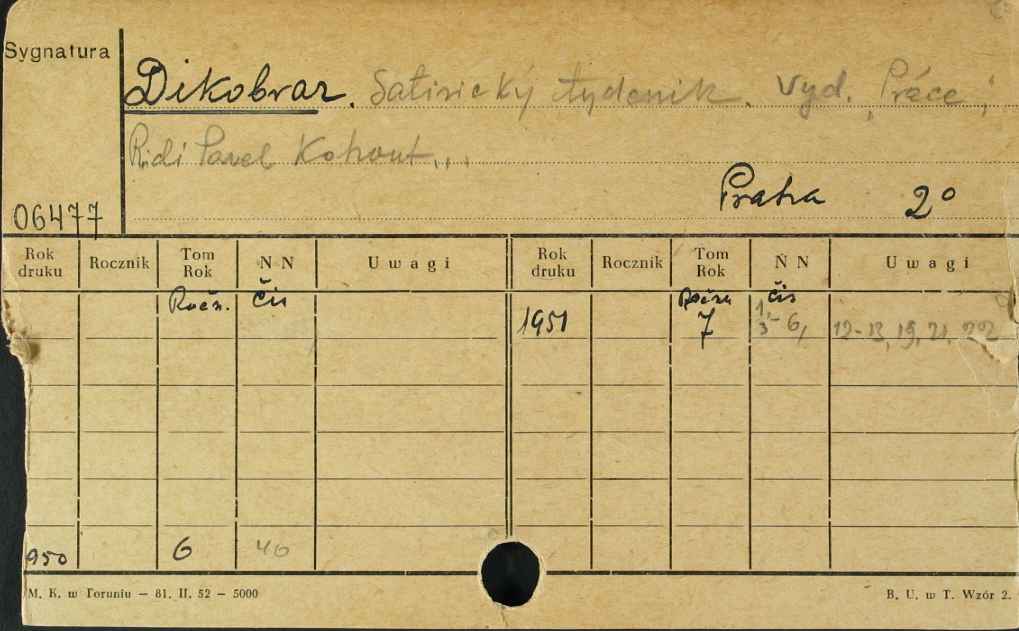 Sygnatura
Dikobraz. Satirický tydenik. Vyd. „Práce";
Ridi Pavel Kohout...
Praha 2°
06477
Rok druku Rocznik Tom Rok NN Uwagi Rok druku Rocznik Tom Rok NN Uwagi
Ročn. Čis Ročn čis
1951 7 1, 3-6, 12-13, 19, 21, 22
950 6 40
M. K. w Toruniu — 81. II. 52 — 5000 B. U. w T. Wzór 2.